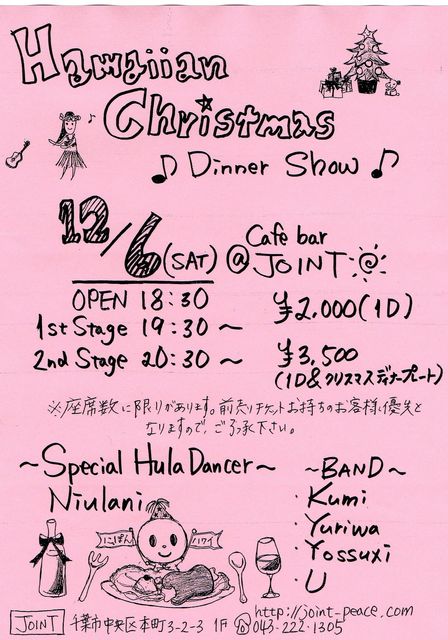 Hawaiian
Christmas
♪ Dinner Show ♪
12/6 (SAT) @ Cafe bar JOINT
OPEN 18:30
1st Stage 19:30 ~
2nd Stage 20:30 ~
¥2,000 (1D)
¥3,500
(1D&クリスマスディナープレート)
※座席数に限りがあります。前売りチケットお持ちのお客様優先と
なりますので、ご了承下さい。
~Special Hula Dancer~
Niulani
~BAND~
・Kumi
・Yuriwa
・Yossuxi
・U
にっぽん
ハワイ
http://joint-peace.com
JOINT 千葉市中央区本町3-2-3 1F ☎043-222-1305